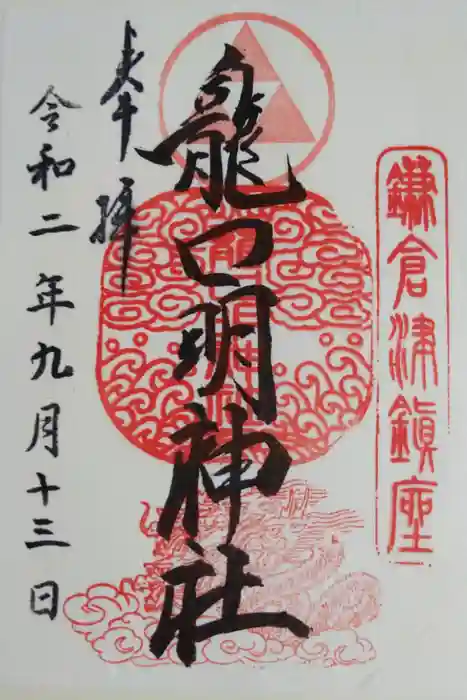 鎌倉津鎮座
龍口明神社
奉拝
令和二年九月十三日